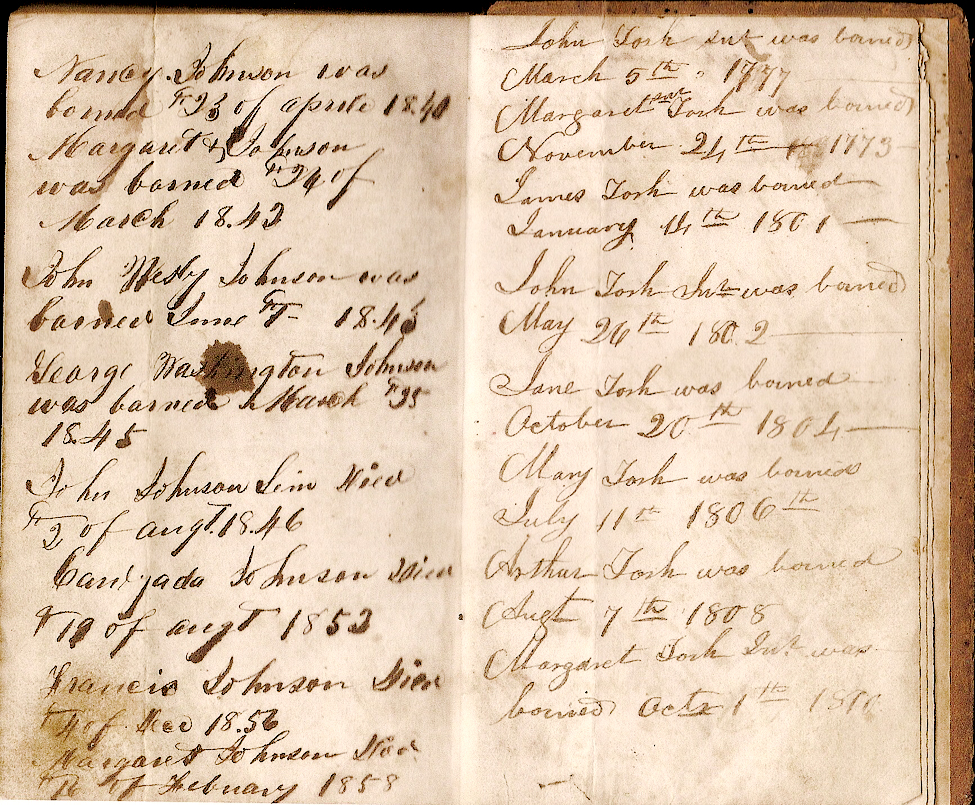 Nancy Johnson was
borned 23 of aprile 18.40
Margaret Johnson
was borned 24 of
March 18.43
John Wesly Johnson was
borned June 18.45
George Washington Johnson
was borned March 25
18.45
John Johnson Died
2 of augt. 18.46
Johnson Died
19 of augt 1853
Francis Johnson Died
4 of Dec 18.56
Margaret Johnson Died
of Febuary 1858
John Tosh snr was borned
March 5th 1777
Margaret snr Tosh was borned
November 24th 1773
James Tosh was borned
January 14th 1801
John Tosh Jnr was borned
May 26th 1802
Jane Tosh was borned
October 20th 1804
Mary Tosh was borned
July 11th 1806th
Arthur Tosh was borned
Augt 7th 1808
Margaret Tosh Jnr was
borned Octr 1th 1810